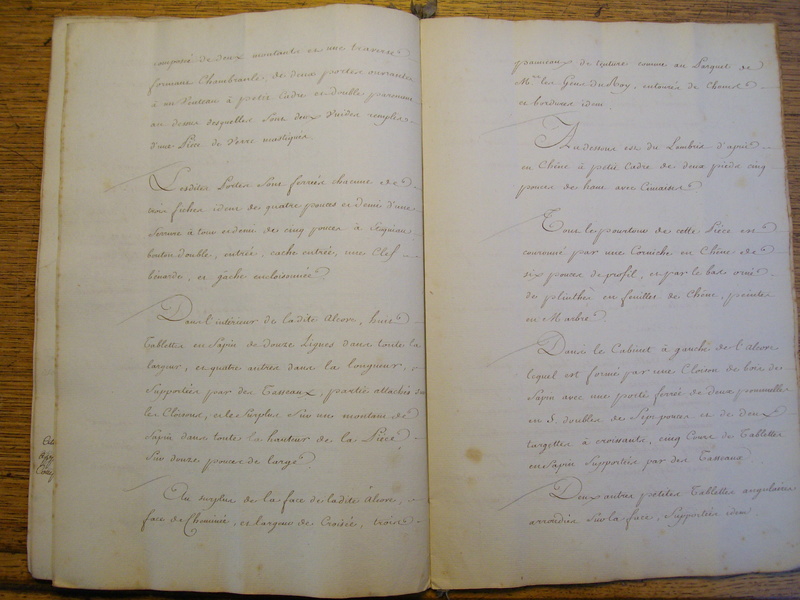 composée de deux montants et une traverse
formant Chambranle, de deux portes ouvrantes
à un Venteau à petit Cadre en double parement
au dessus desquelles sont deux Vuides remplis
d'une Pièce de Verre mastiquée
Lesdites Portes sont ferrées chacune de
six fiches idem de quatre pouces et demi d'une
Serrure à tour et demi de cinq pouces à
bouton double, entrée, cache entrée, une Clef
bénarde, et gâche encloisonnée
Dans l'intérieur de ladite Alcove, huit
Tablettes en Sapin de douze Lignes dans toute la
largeur, et quatre autres dans la longueur,
Supportées par des Tasseaux, partie attachés
les Cloisons, et le Surplus Sur un montant de
Sapin dans toute la hauteur de la Pièce
Sur douze pouces de large
Au surplus de la face de ladite Alcove,
face de Cheminée, et largeur de Croisée, trois
panneaux de tenture comme au Parquet de
M.rs les Gens du Roy, entourés de
et bordures idem
Au dessous est du Lambris d'apui
en Chêne à petit Cadre de deux pieds cinq
pouces de haut avec Cimaises
Tout le pourtour de cette Pièce est
couronné par une Corniche en Chêne de
six pouces de profil, et par le bas orné
de plinthes en feuillet de Chêne, peintes
en Marbre
Dans le Cabinet à gauche de l'Alcove
lequel est formé par une Cloison de bois de
Sapin avec une porte ferrée de deux pommelles
en S, doubles de Sept pouces et de deux
targettes à croissant, cinq Cours de Tablettes
en Sapin Supportées par des Tasseaux
Deux autres petites Tablettes angulaires
arrondies Sur la face, Supportées idem